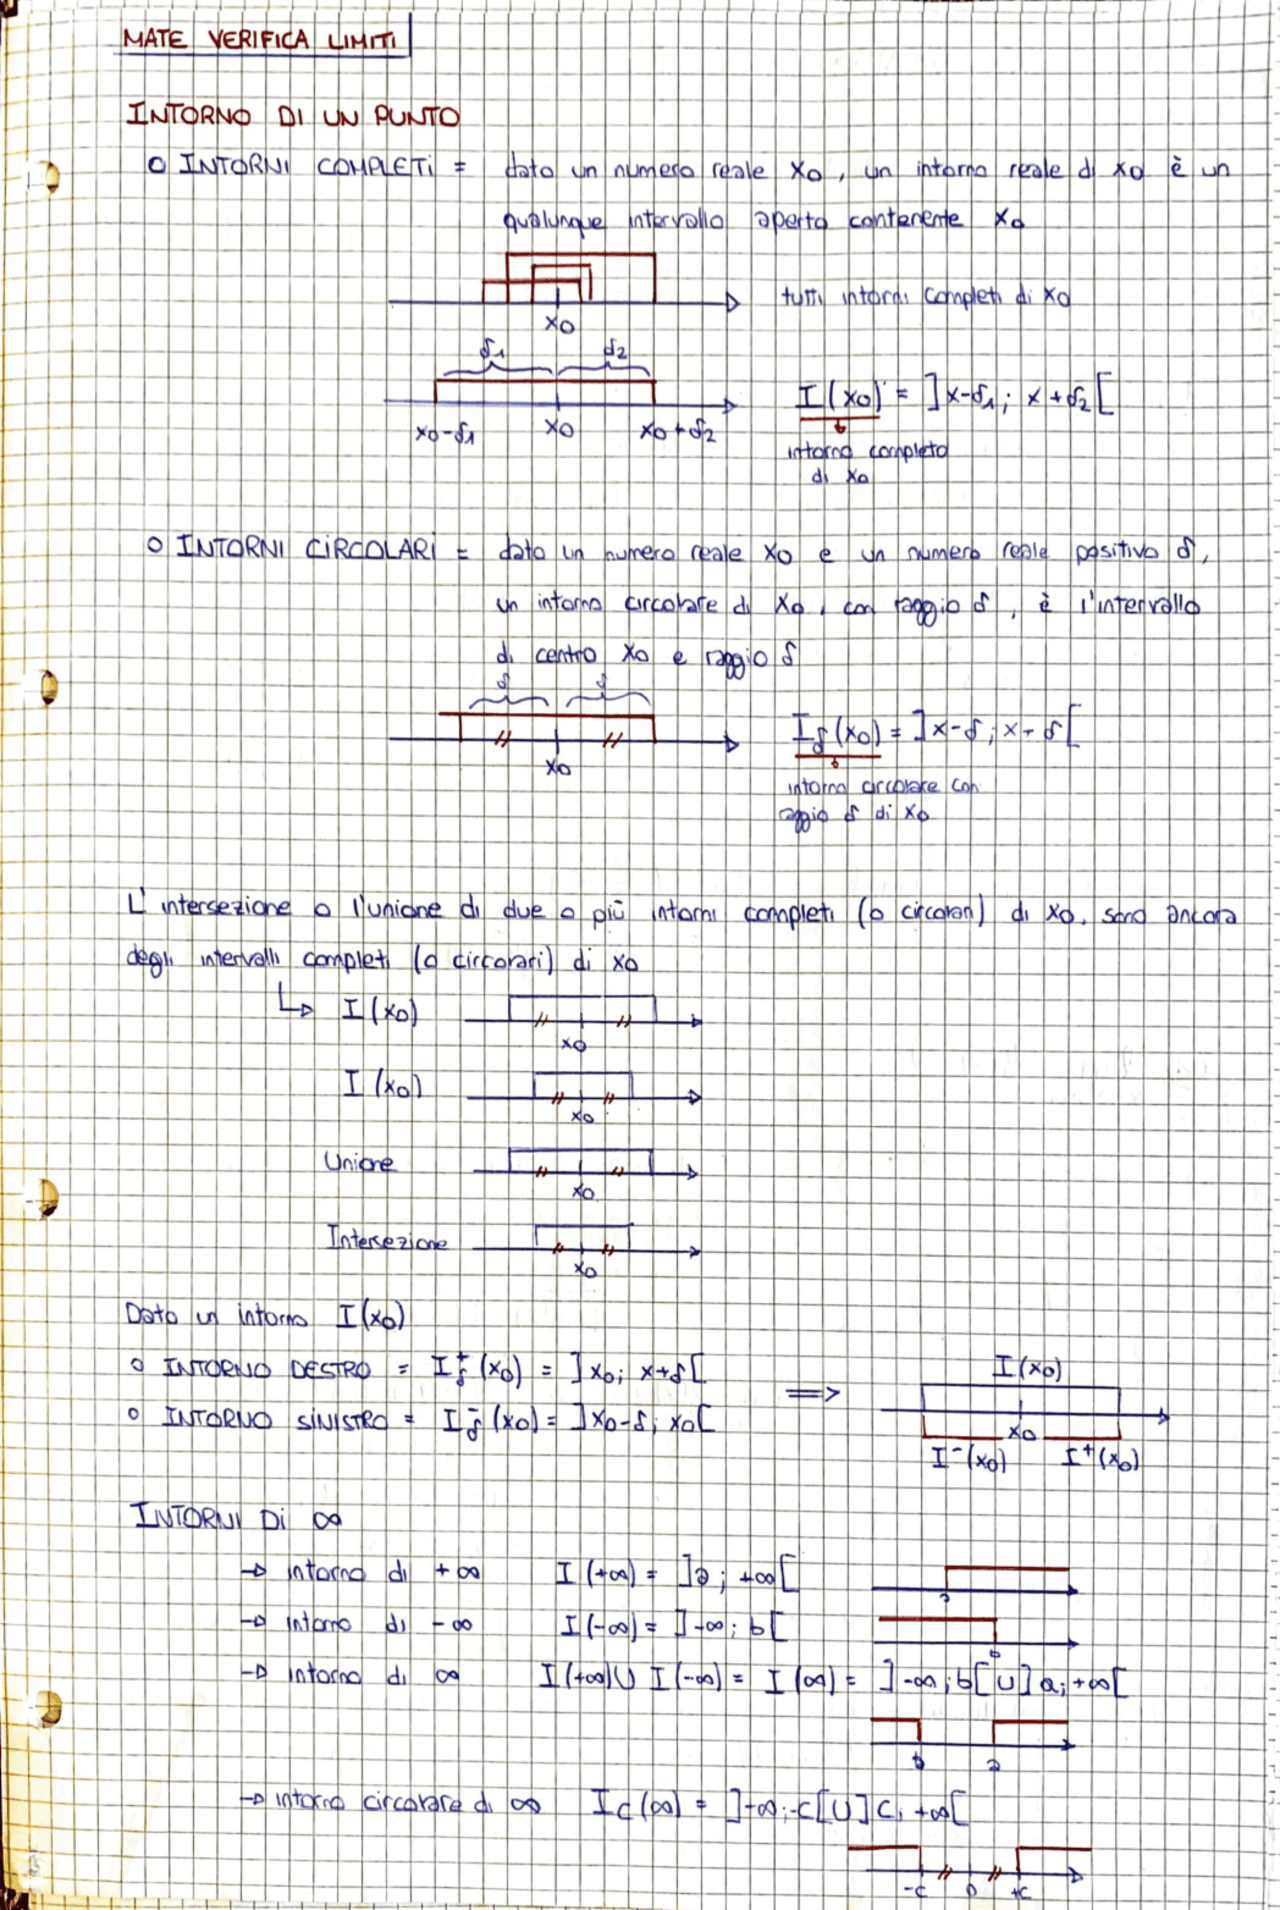 MATE VERIFICA LIMITI
INTORNO DI UN PUNTO
O INTORNI COMPLETI = dato un numero reale x0, un intorno reale di x0 è un
qualunque intervallo aperto contenente x0
tutti intorni completi di x0
x0
δ1 δ2
I(x0) = ]x-δ1; x+δ2[
x0-δ1 x0 x0+δ2
intorno completo
di x0
O INTORNI CIRCOLARI = dato un numero reale x0 e un numero reale positivo δ,
un intorno circolare di x0, con raggio δ, è l'intervallo
di centro x0 e raggio δ
δ δ
Iδ(x0) = ]x-δ; x- δ[
x0
intorno circolare con
raggio δ di x0
L'intersezione o l'unione di due o più intorni completi (o circolari) di x0, sono ancora
degli intervalli completi (o circorari) di x0
I(x0)
x0
I(x0)
x0
Unione
x0
Intersezione
x0
Dato un intorno I(x0)
O INTORNO DESTRO = Iδ+(x0) = ]x0; x+δ[
O INTORNO SINISTRO = Iδ-(x0) = ]x0-δ; x0[
=> I(x0)
x0
I-(x0) I+(x0)
INTORNI DI ∞
→ intorno di +∞ I(+∞) = ]a; +∞[
a
→ intorno di -∞ I(-∞) = ]-∞; b[
b
→ intorno di ∞ I(+∞) U I(-∞) = I(∞) = ]-∞; b[ U ]a; +∞[
b a
→ intorno circolare di ∞ Ic(∞) = ]-∞; -c[ U ]c; +∞[
-c 0 +c